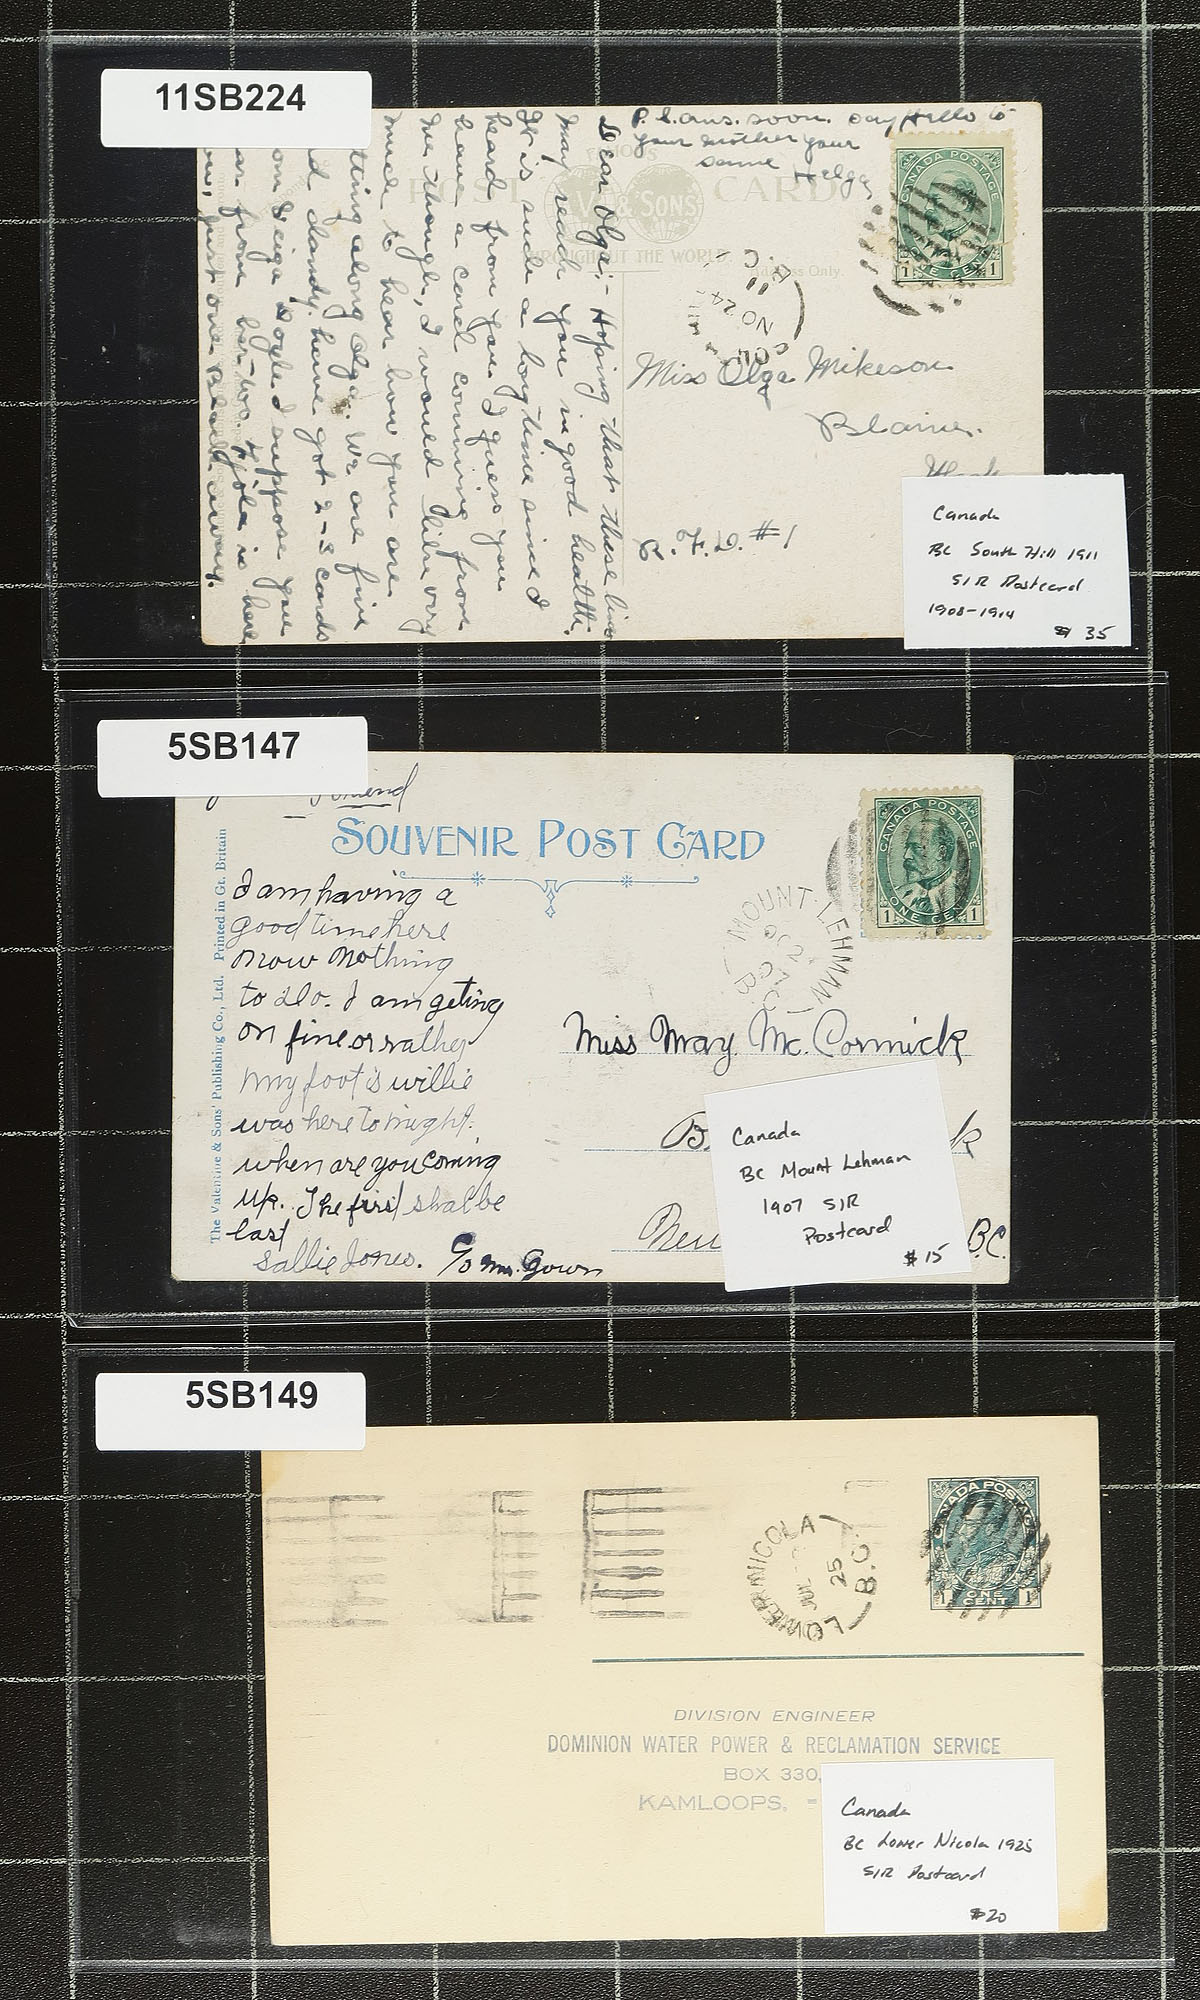 11SB224
P.S. ans. soon. say Hello to
your mother your
same Helga
FAMOUS
POST CARD
V & SONS
THROUGHOUT THE WORLD.
Address Only.
CANADA POSTAGE
1 ONE CENT 1
NO 24
11
B.C.
Dear Olga:- Hoping that these lines
may reach you in good health.
It is such a long time since I
heard from you I guess you
have a card comming from
me though, I would like very
much to hear how you are
tting along Olga. We are fine
d dandy. have got 2-3 cards
om Seiga Doyle I suppose you
ar from her too. Fjola is here
ow, just one Block away.
Miss Olga Mikeson
Blaine.
Wash
R.F.D. #1
Canada
BC South Hill 1911
S/R Postcard
1908-1914
$35
5SB147
Friend
SOUVENIR POST CARD
The Valentine & Sons' Publishing Co., Ltd. Printed in Gt. Britain
CANADA POSTAGE
1 ONE CENT 1
MOUNT LEHMAN
B.C.
I am having a
good time here
now nothing
to do. I am geting
on fine or rather
my foot is willie
was here to night.
when are you coming
up. The first shal be
last
Sallie Jones. c/o Mr. Gown
Miss May Mc. Cormick
B k
New B.C.
Canada
BC Mount Lehman
1907 S/R
Postcard
$15
5SB149
LOWER NICOLA
JUL
25
B.C.
CANADA POSTAGE
1 ONE CENT 1
DIVISION ENGINEER
DOMINION WATER POWER & RECLAMATION SERVICE
BOX 330,
KAMLOOPS, -
Canada
BC Lower Nicola 1925
S/R Postcard
$20